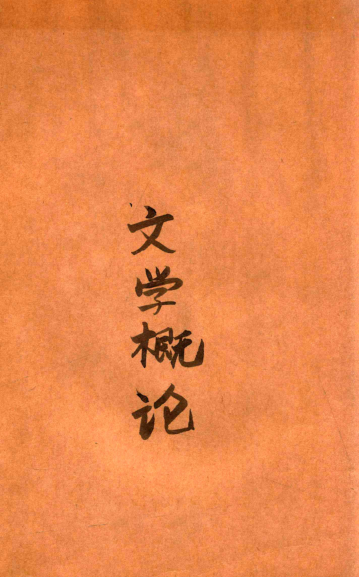 文学概论